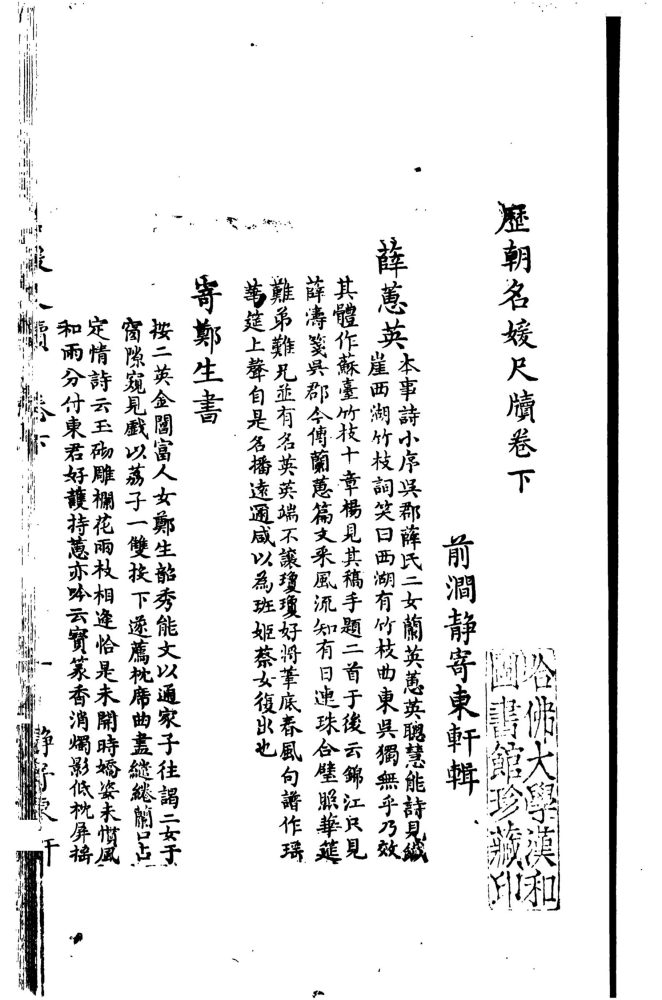 歷朝名媛尺牘卷下
前澗靜寄東軒輯
哈佛大學漢和
圖書館珍藏印
薛蕙英
本事詩小序吳郡薛氏二女蘭英蕙英聰慧能詩見鐵
崖西湖竹枝詞笑曰西湖有竹枝曲東吳獨無乎乃效
其體作蘇臺竹枝十章楊見其稿手題二首于後云錦江只見
薛濤箋吳郡今傳蘭蕙篇文采風流知有日連珠合璧照華筵
難弟難兄並有名英英端不讓瓊瓊好將筆底春風句譜作瑶
箏筵上聲自是名播遠邇咸以為班姬蔡女復出也
寄鄭生書
按二英金閶富人女鄭生韶秀能文以通家子往謁二女于
窗隙窺見戲以荔子一雙投下遂薦枕席曲盡繾綣蘭口占
定情詩云玉砌雕欄花兩枝相逢恰是未開時嬌姿未慣風
和雨分付東君好護持蕙亦吟云寶篆香消燭影低枕屏搖
卷下 一 靜寄東軒